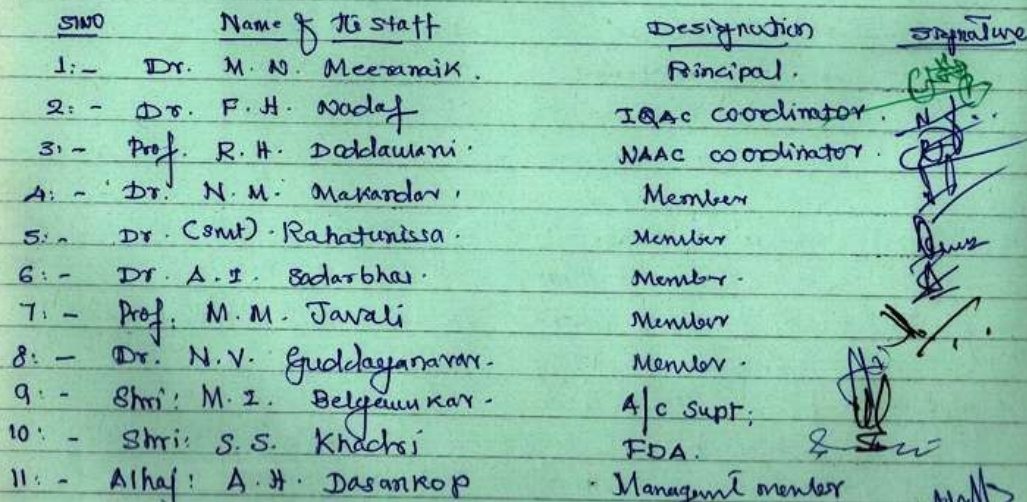 SINO Name of the staff Designation Signature
1:- Dr. M. N. Meeranaik. Principal.
2:- Dr. F. H. Nadaf IQAC coordinator.
3:- Prof. R. H. Doddawani. NAAC coordinator.
4:- Dr. N. M. Makandar. Member
5:- Dr. (Smt). Rahatunissa. Member
6:- Dr. A. I. Sadarbhai. Member.
7:- Prof. M. M. Javali Member
8:- Dr. N.V. Guddaganavar. Member.
9:- Shri: M. I. Belgaumkar. A/c Supt:
10:- Shri: S. S. Khadri FDA.
11:- Alhaj: A. H. Dasankop Managemt member